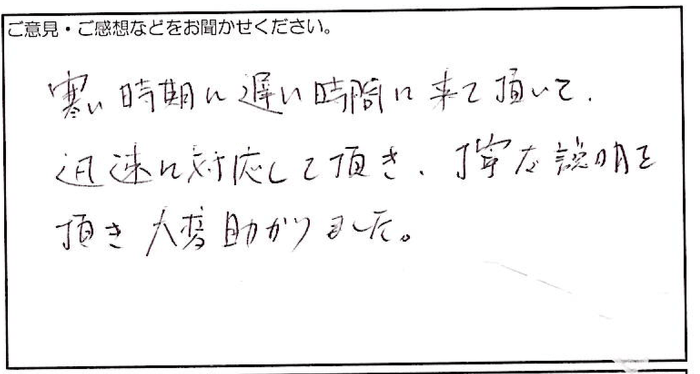 ご意見・ご感想などをお聞かせください。
寒い時期に遅い時間に来て頂いて、
迅速に対応して頂き、丁寧な説明を
頂き大変助かりました。